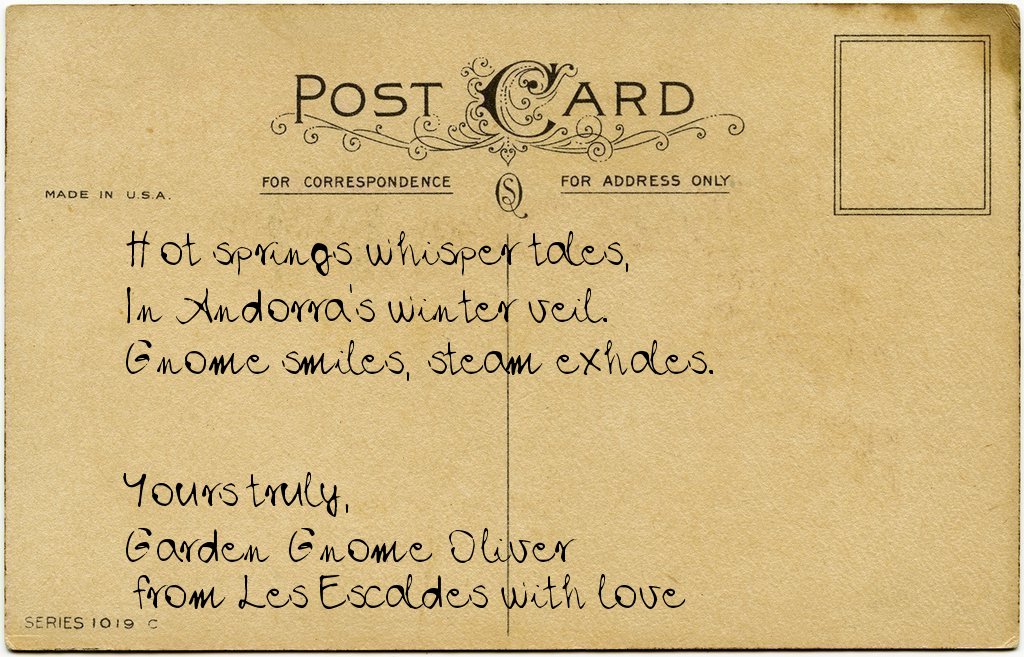 POST CARD
FOR CORRESPONDENCE
FOR ADDRESS ONLY
MADE IN U.S.A.
Hot springs whisper tales,
In Andorra's winter veil.
Gnome smiles, steam exhales.
Yours truly,
Garden Gnome Oliver
from Les Escaldes with love
SERIES 1019 C